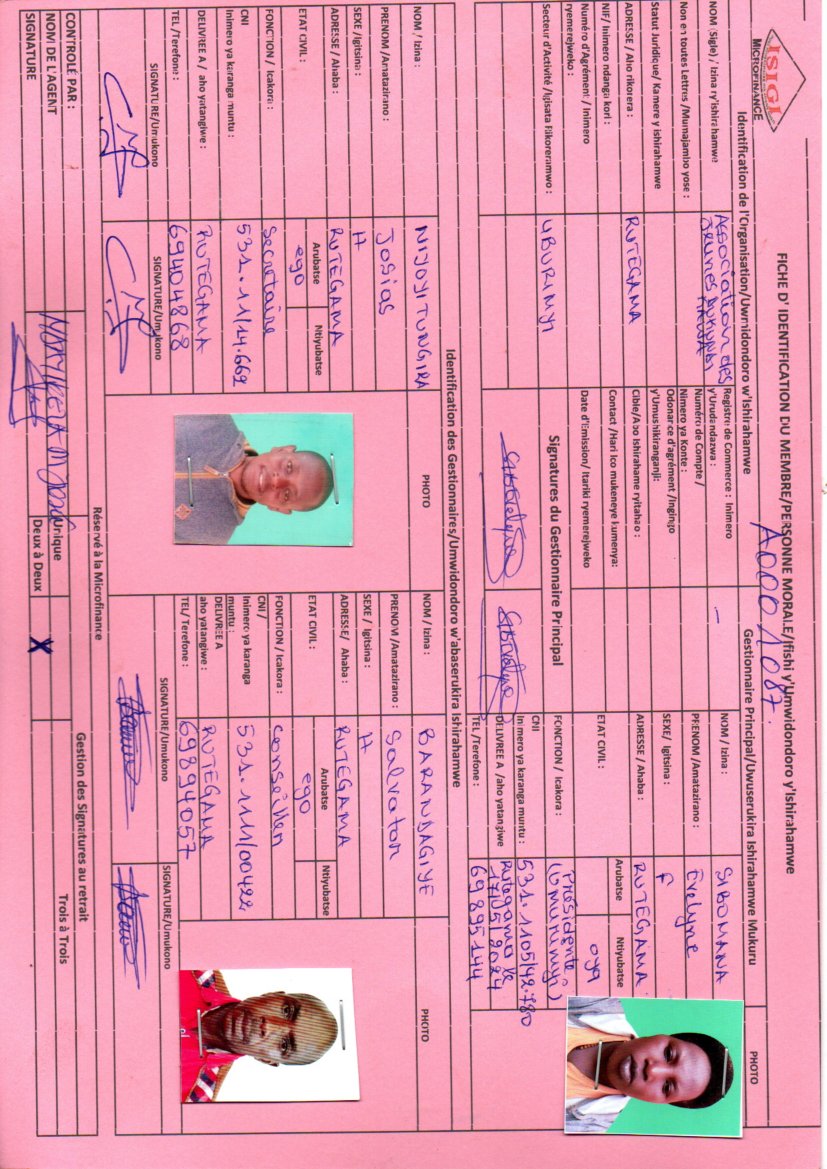 ISIGI
MICROFINANCE
FICHE D' IDENTIFICATION DU MEMBRE/PERSONNE MORALE/Ifishi y'Umwidondoro y'Ishirahamwe
A0001087.
Identification de l'Organisation/Uwmidondoro w'Ishirahamwe
Gestionnaire Principal/Uwuserukira Ishirahamwe Mukuru
PHOTO
NOM (Sigle) / Izina ry'ishirahamwe
Association des
Jeunes
Non en toutes Lettres /Mumajambo yose :
Statut Juridique/ Kamere y ishirahamwe
ADRESSE / Aho rikorera :
RUTEGAMA
NIF/ Inimero ndangu kori :
Numéro d'Agrément / Inimero
ryemerejweko :
Secteur d'Activité /Igisata Rikoreramwo :
UBURIMYI
Registre de Commerce : Inimero
y'Urudandazwa :
Numéro de Compte /
Nimero ya Konte :
Odonance d'agrément /Ingingo
y'Umushikiranganji:
Cible/Abo Ishirahame ryitaho :
Contact /Hari Ico mukeneye kumenya:
Date d'Emission/ Itariki ryemerejweko
Signatures du Gestionnaire Principal
NOM / Izina :
SIBOMANA
PRENOM /Amatazirano :
Evelyne
SEXE/ Igitsina :
F
ADRESSE / Ahaba :
RUTEGAMA
ETAT CIVIL :
Arubatse
Ntiyubatse
oya
FONCTION / Icakora :
Présidente
(Umurimyi)
CNI
Inimero ya karanga muntu :
531.1105/42.780
DELIVREE A /aho yatangiwe
Rutegama le
17/05/2024
TEL /Terefone :
69895144
Identification des Gestionnaires/Umwidondoro w'abaserukira Ishirahamwe
NOM / Izina :
NIJOYITUNGIRA
PHOTO
PRENOM /Amatazirano :
Josias
SEXE /Igitsina :
H
ADRESSE / Ahaba :
RUTEGAMA
ETAT CIVIL :
Arubatse
Ntiyubatse
ego
FONCTION / Icakora :
Secretaire
CNI
Inimero ya karanga muntu :
531.11/14.669
DELIVREE A / aho yatangiwe :
RUTEGAMA
TEL /Terefone :
69404868
SIGNATURE/Umukono
SIGNATURE/Umukono
NOM / Izina :
BARANDAGIYE
PHOTO
PRENOM /Amatazirano :
Salvator
SEXE / Igitsina :
H
ADRESSE/ Ahaba :
RUTEGAMA
ETAT CIVIL :
Arubatse
Ntiyubatse
ego
FONCTION / Icakora :
Conseiller
CNI /
Inimero ya karanga
muntu :
DELIVREE A
aho yatangiwe :
RUTEGAMA
TEL/ Terefone :
69894057
SIGNATURE/Umukono
SIGNATURE/Umukono
Réservé à la Microfinance
CONTROLÉ PAR :
NOM DE L'AGENT
SIGNATURE
Gestion des Signatures au retrait
Unique
Deux à Deux
X
Trois à Trois